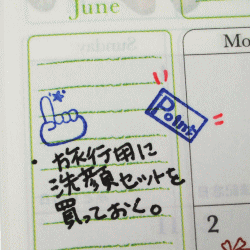 June
Mo
Point
・旅行用に
洗顔セットを
買っておく。
2